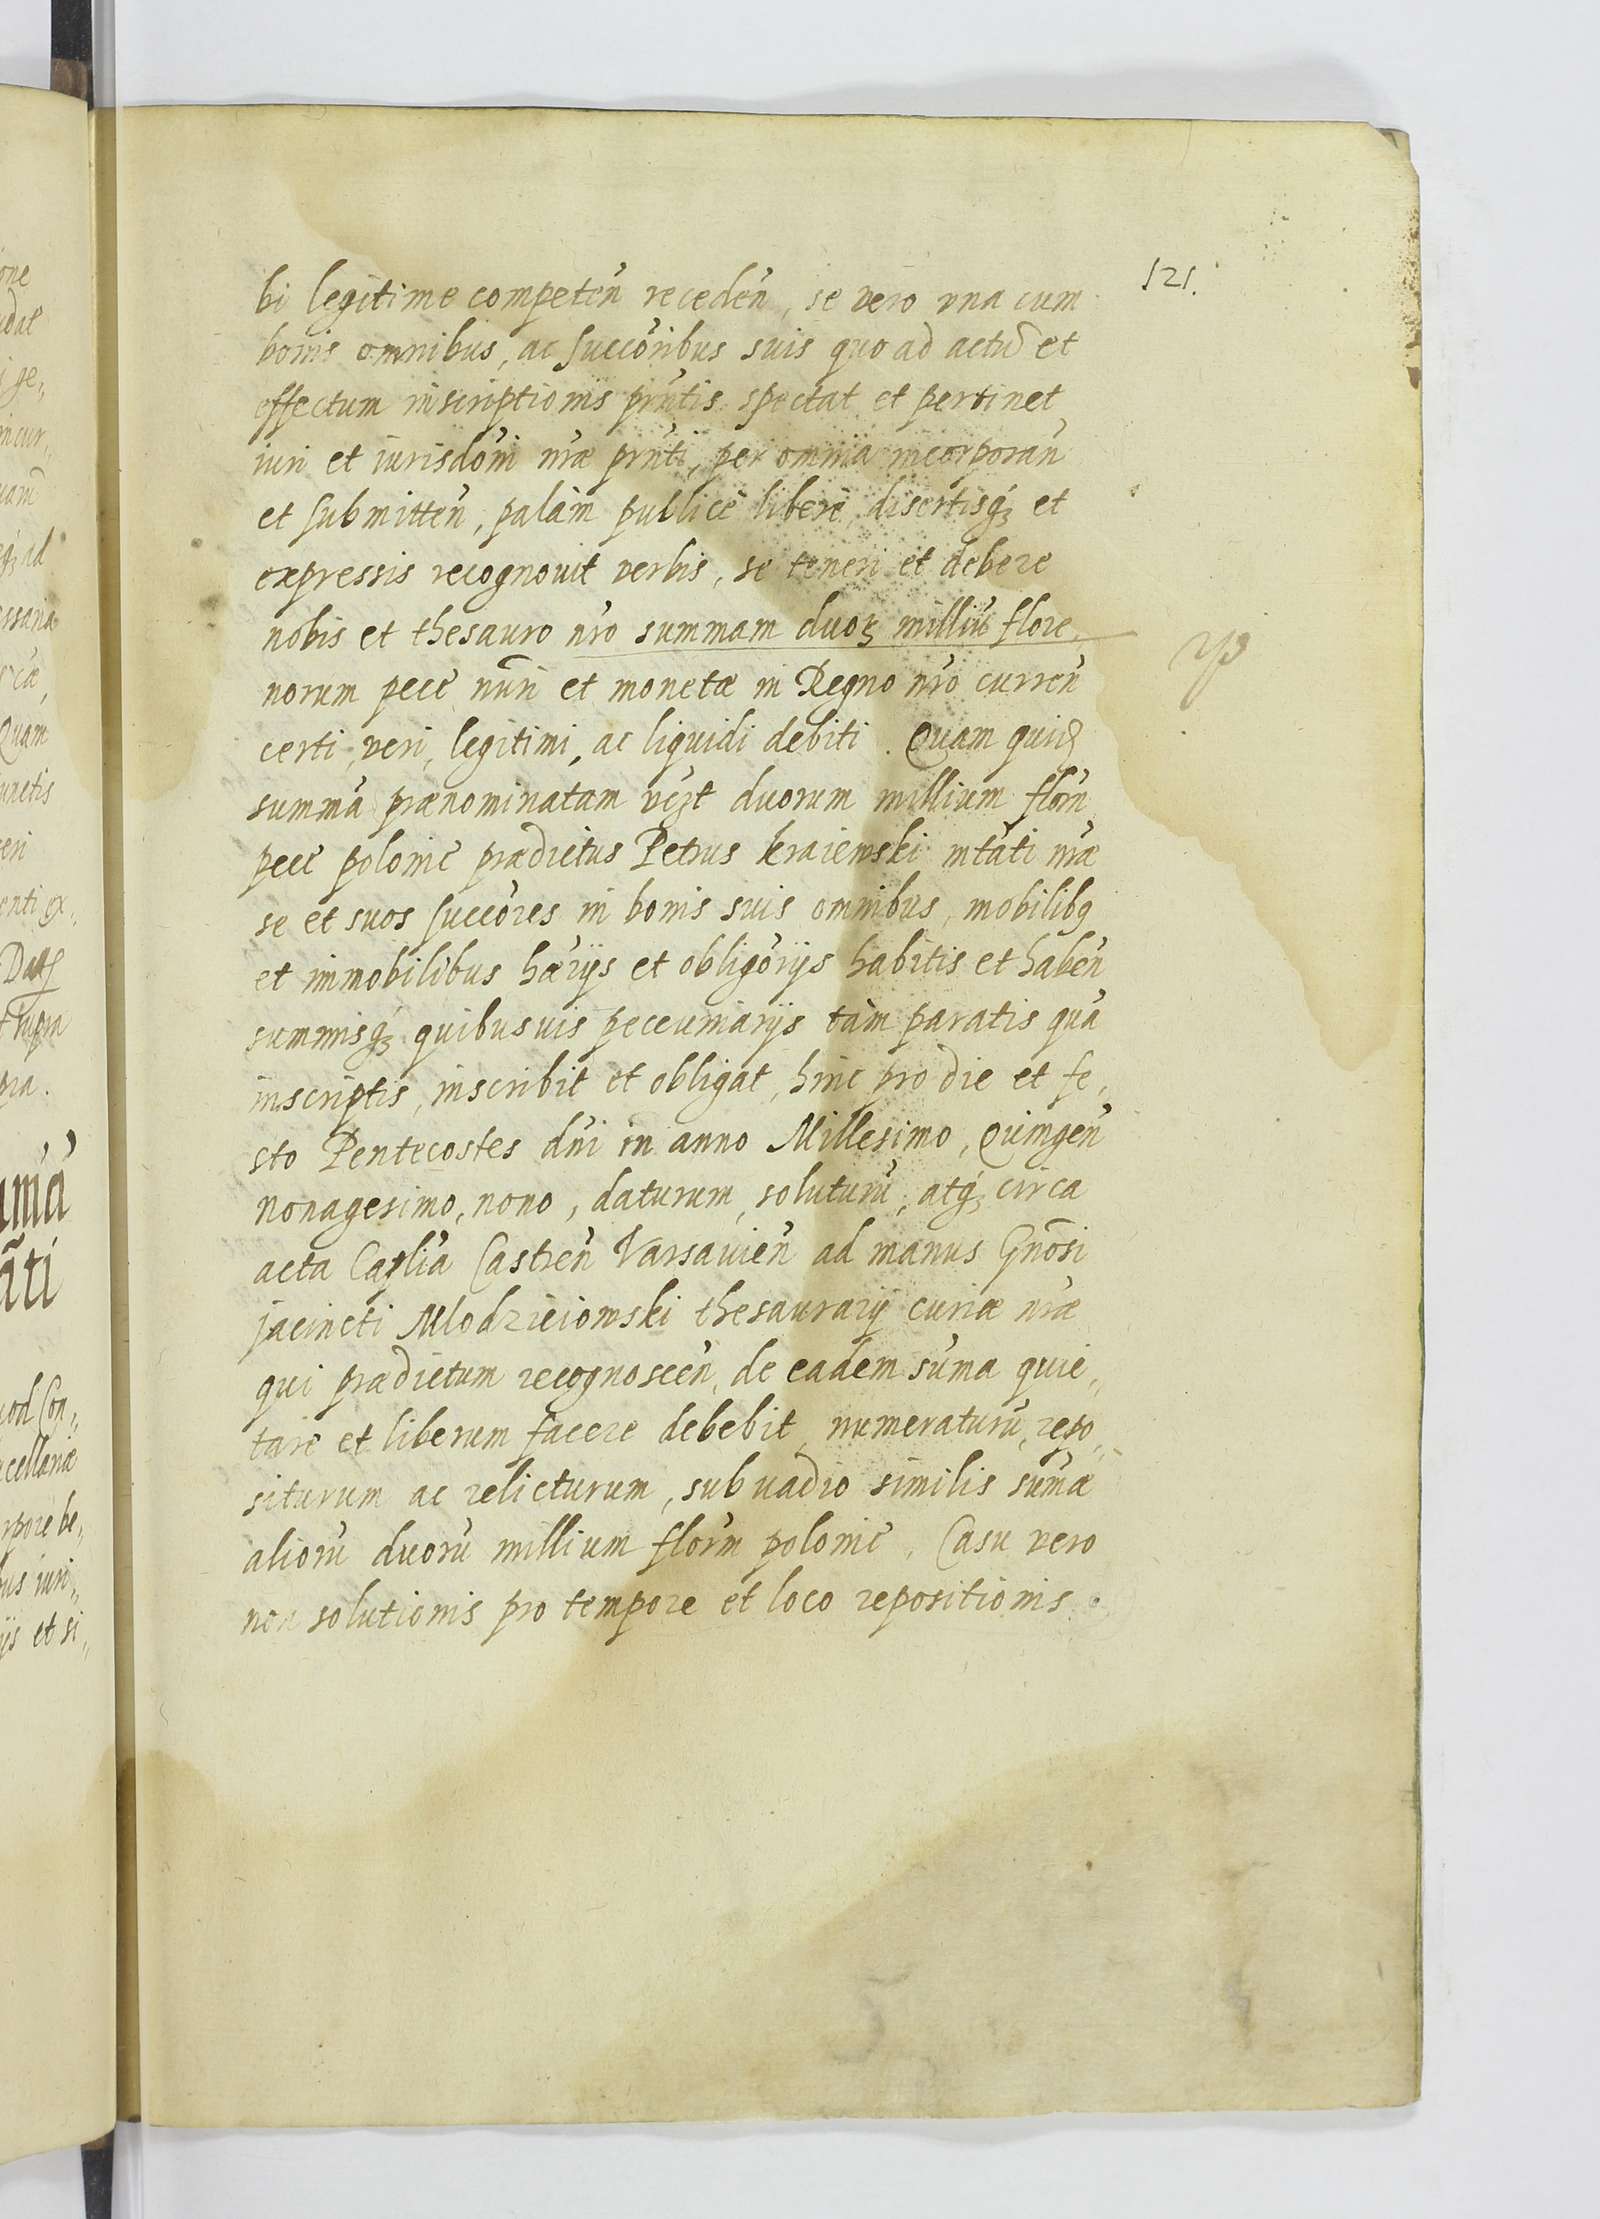 121.
bi legitime competen̄ receden̄, se vero vna cum
bonis omnibus, ac succōribus suis quo ad actū et
effectum inscriptionis prn̄tis spectat et pertinet
iuri et iurisdōni nr̄æ prn̄ti, per omnia incorporan̄
et submitten̄, palàm publicè liberè, disertisq́ꝫ et
expressis recognouit verbis, se teneri et debere
nobis et thesauro nr̄o summam duoꝝ milliū flore,
norum pecc̄ nūri et monetæ in Regno nr̄o curren̄
certi, veri, legitimi, ac liquidi debiti. Quam quidꝫ
summā prænominatam vꝫt duorum millium florn̄
pecc̄ polonic̄ prædictus Petrus kraiewski mtāti nr̄æ
se et suos succōres in bonis suis omnibus, mobilibꝗ
et immobilibus hær̄ijs et obligōrijs habitis et haben̄
summisq́ꝫ quibusuis pecuniarijs tàm paratis quā
inscriptis, inscribit et obligat, hinc pro die et fe,
sto Pentecostes dn̄i in anno Millesimo, Quingen̄
nonagesimo, nono, daturum, soluturū, atq́ꝫ circa
acta Caplīa Castren̄ Varsauien̄ ad manus Gn̄osi
jacincti Mlodzieiowski thesaurarij curiæ nr̄æ
qui prædictum recognoscen̄, de eadem sūma quie,,
tare et liberum facere debebit, numeraturū, repo,,
siturum ac relicturum, sub vadio similis sūmæ
aliorū duorū millium florn̄ polonic̄. Casu vero
non solutionis pro tempore et loco repositionis